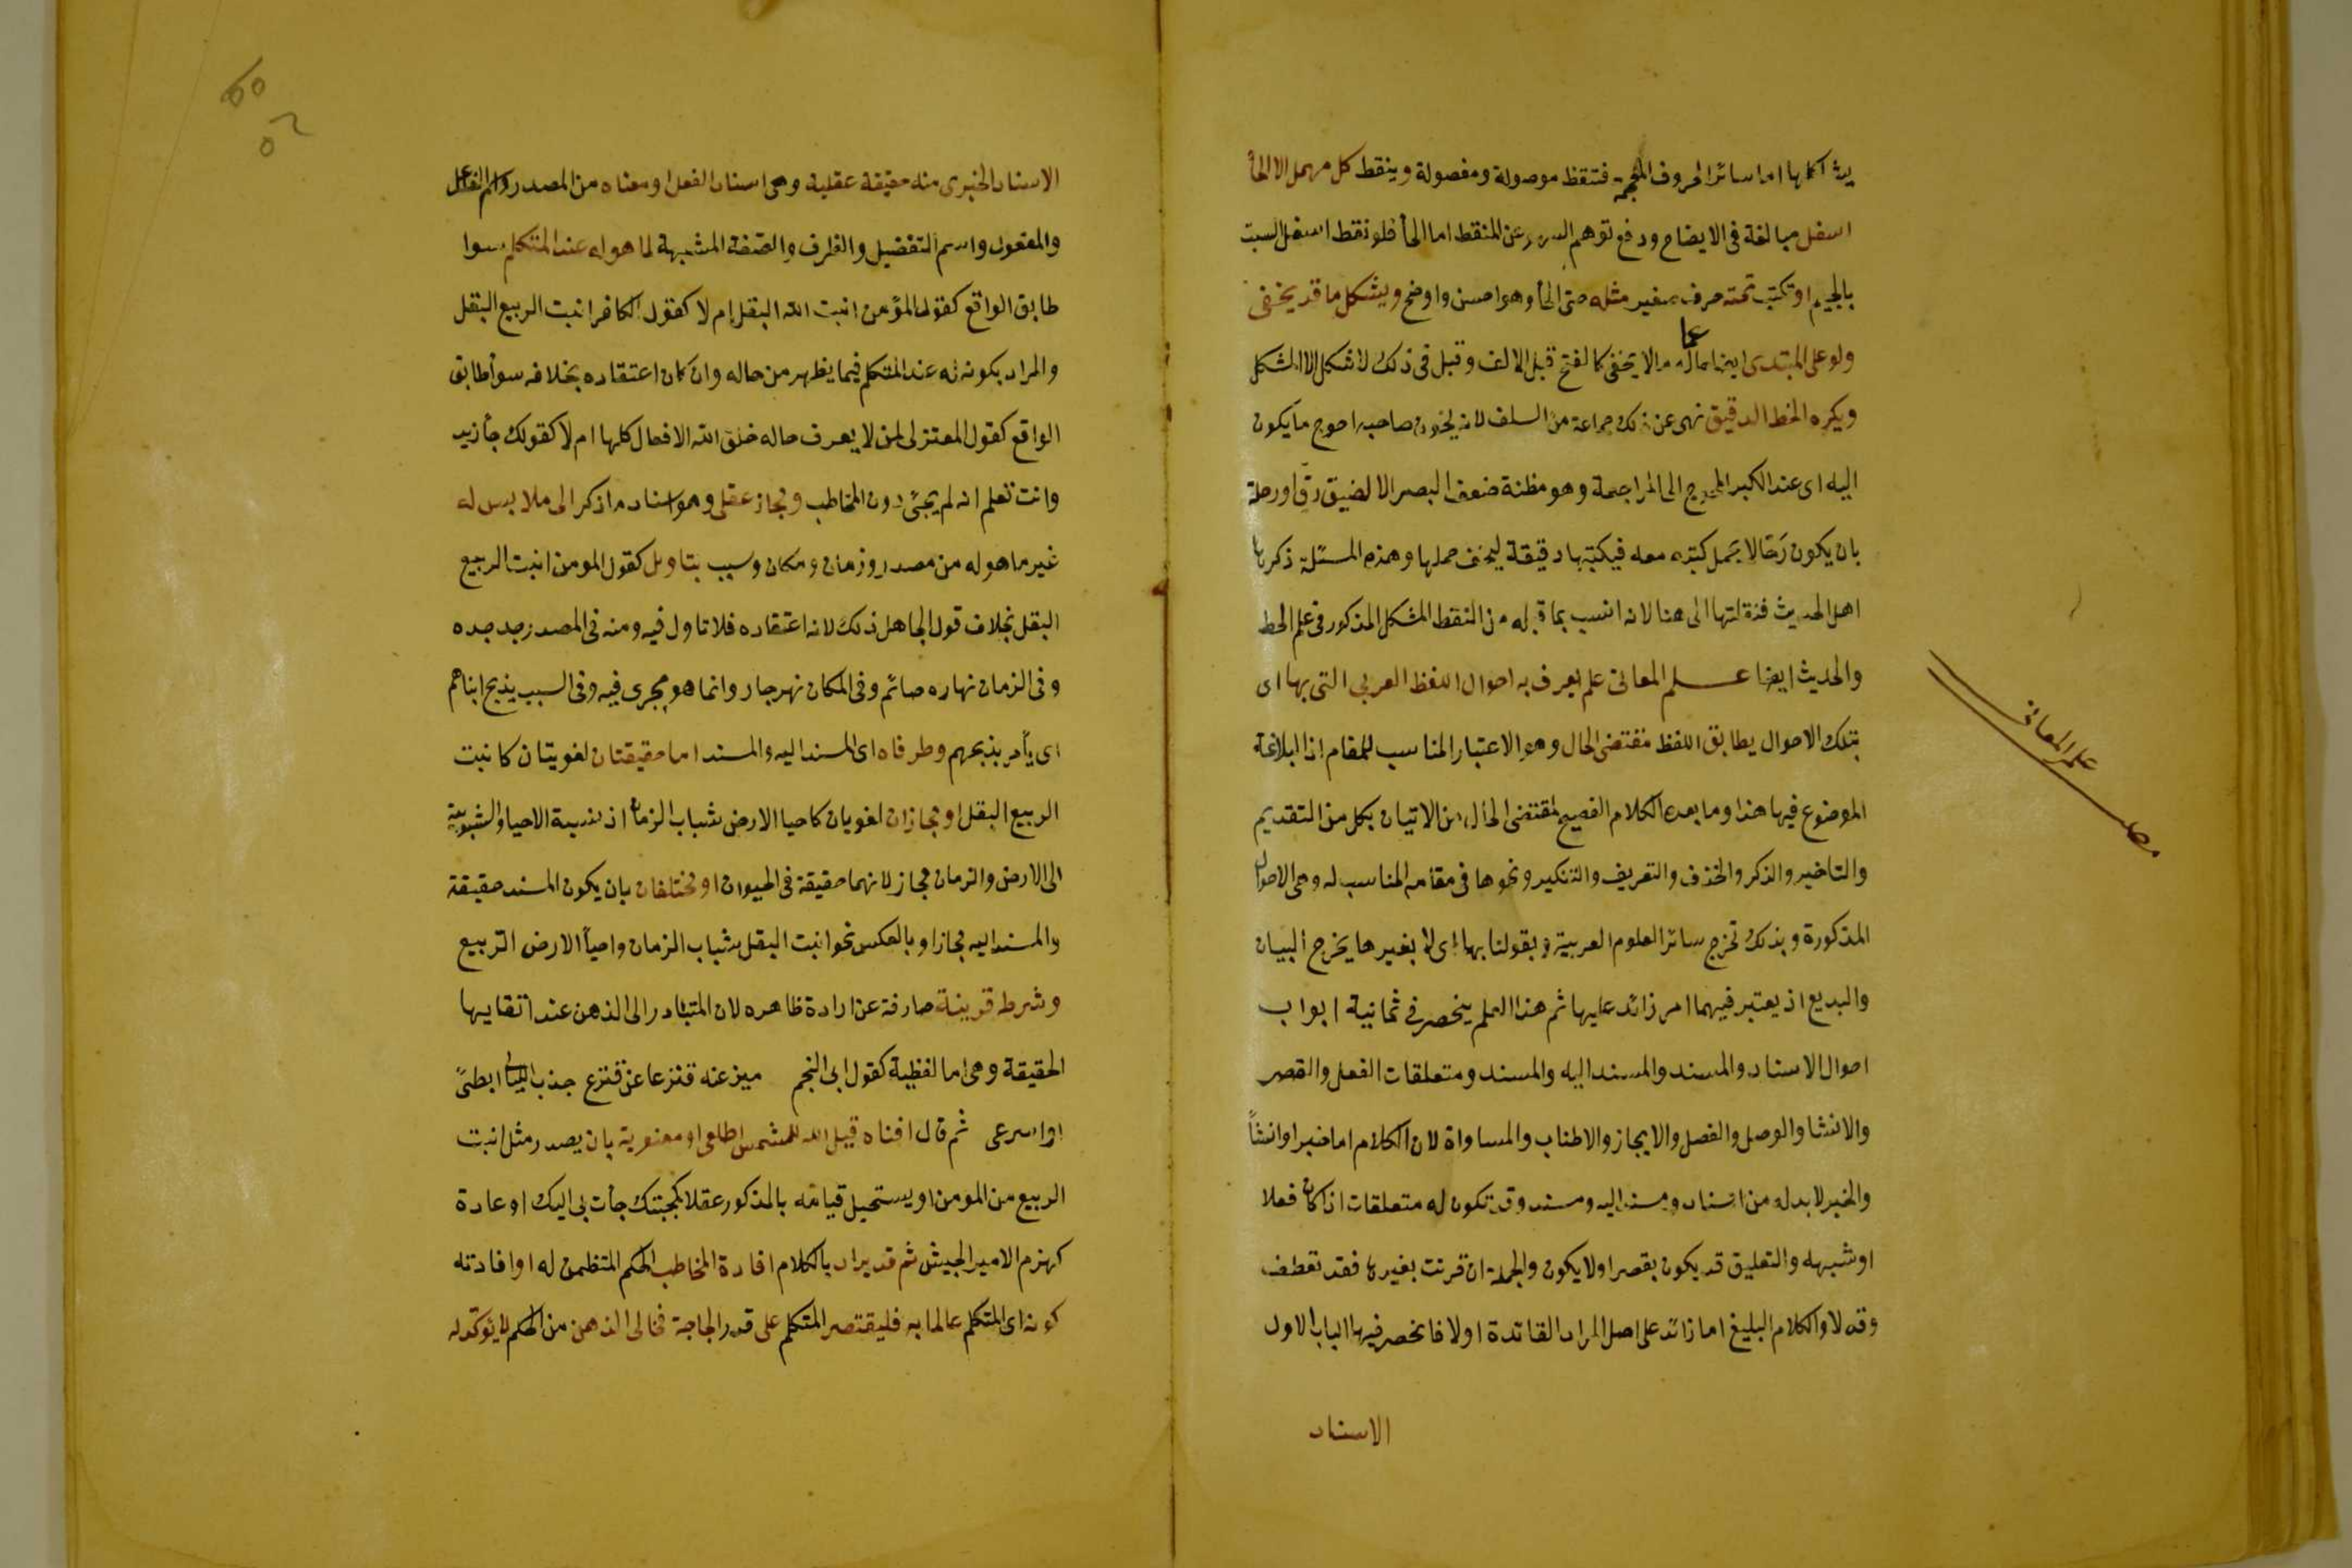 يشاكلها اما سائر الحروف المعجمة فتنقط موصولة ومفصولة وينقط كل مهمل الا الحأ
اسفل مبالغة فى الايضاح ودفع توهم السهو عن المنقط اما الحأ فلو نقط اسفل التبست
بالجيم او تكتب تحته حرف صغير مثله حتى الحأ وهو احسن واوضح ويشكل ما قد يخفى
ولو على المبتدى ايضا ما لا يخفى كالفتح قبل الالف وقيل فى ذلك لا شكل الا المشكل
ويكره الخط الدقيق نهى عن ذلك جماعة من السلف لانه يخون صاحبه احوج ما يكون
اليه اى عند الكبر المحوج الى المراجعة وهو مظنة ضعف البصر الا لضيق رق او رحلة
بان يكون رحالا يحمل كتبه معه فيكتبها دقيقة ليخف حملها وهذه المسئلة ذكرها
اهل الحديث فنقلتها الى هنا لانه انسب بما قبله من النقط المشكل المذكور فى علم الخط
والحديث ايضا علم المعانى علم يعرف به احوال اللفظ العربى التى بها اى
بتلك الاحوال يطابق اللفظ مقتضى الحال وهو الاعتبار المناسب للمقام اذ البلاغة
الموضوع فيها هذا وما بعده الكلام الفصيح لمقتضى الحال من الاتيان بكل من التقديم
والتاخير والذكر والحذف والتعريف والتنكير ونحوها فى مقامه المناسب له وهى الاحوال
المذكورة وبذلك تخرج سائر العلوم العربية وبقولنا بها اى لا بغيرها يخرج البيان
والبديع اذ يعتبر فيهما امر زائد عليها ثم هذا العلم ينحصر فى ثمانية ابواب
احوال الاسناد والمسند والمسند اليه والمسند ومتعلقات الفعل والقصر
والانشا والوصل والفصل والايجاز والاطناب والمساواة لان الكلام اما خبر او انشأ
والخبر لا بد له من اسناد ومسند اليه ومسند وقد تكون له متعلقات اذا كان فعلا
او شبهه والتعليق قد يكون بقصر اولا يكون والجملة ان قرنت بغيرها فقد تعطف
وقد لا والكلام البليغ اما زائد على اصل المراد لفائدة اولا فانحصر فيها الباب الاول
الاسناد
علم المعانى
مص
الاسناد الخبرى منه حقيقة عقلية وهى اسناد الفعل او معناه من المصدر واسم الفاعل
والمفعول واسم التفضيل والظرف والصفة المشبهة لما هو له عند المتكلم سوا
طابق الواقع كقول المؤمن انبت الله البقل ام لا كقول الكافر انبت الربيع البقل
والمراد بكونه له عند المتكلم فيما يظهر من حاله وان كان اعتقاده بخلافه سوأ طابق
الواقع كقول المعتزلى لمن لا يعرف حاله خلق الله الافعال كلها ام لا كقولك جأ زيد
وانت تعلم انه لم يجئ دون المخاطب ومجاز عقلى وهو اسناد ما ذكر الى ملابس له
غير ما هو له من مصدر وزمان ومكان وسبب بتاويل كقول المومن انبت الربيع
البقل بخلاف قول الجاهل ذلك لانه اعتقاده فلا تاول فيه ومنه فى المصدر جد جده
وفى الزمان نهاره صائم وفى المكان نهر جار وانما هو مجرى فيه وفى السبب يذبح ابناهم
اى يأمر بذبحهم وطرفاه اى المسند اليه والمسند اما حقيقتان لغويتان كانبت
الربيع البقل او مجازان لغويان كاحيا الارض شباب الزمان اذ نسبة الاحيا والشبوبية
الى الارض والزمان مجاز لانهما حقيقة فى الحيوان او مختلفان بان يكون المسند حقيقة
والمسند اليه مجازا وبالعكس نحو انبت البقل شباب الزمان واحيأ الارض الربيع
وشرط قرينة صارفة عن ارادة ظاهره لان المتبادر الى الذهن عند انتقايها
الحقيقة وهى اما لفظية كقول ابى النجم ميز عنه قنزعا عن قنزع جذب الليالى ابطئ
او اسرعى ثم قال افناه قيل الله للشمس اطلعى او معنوية بان يصدر مثل انبت
الربيع من المومن او يستحيل قيامه بالمذكور عقلا كمحبتك جأت بى اليك او عادة
كهزم الامير الجيش ثم قد يراد بالكلام افادة المخاطب الحكم المتظمن له او افادته
كونه اى المتكلم عالما به فليقتصر المتكلم على قدر الحاجة فخالى الذهن من الحكم لا يؤكد له